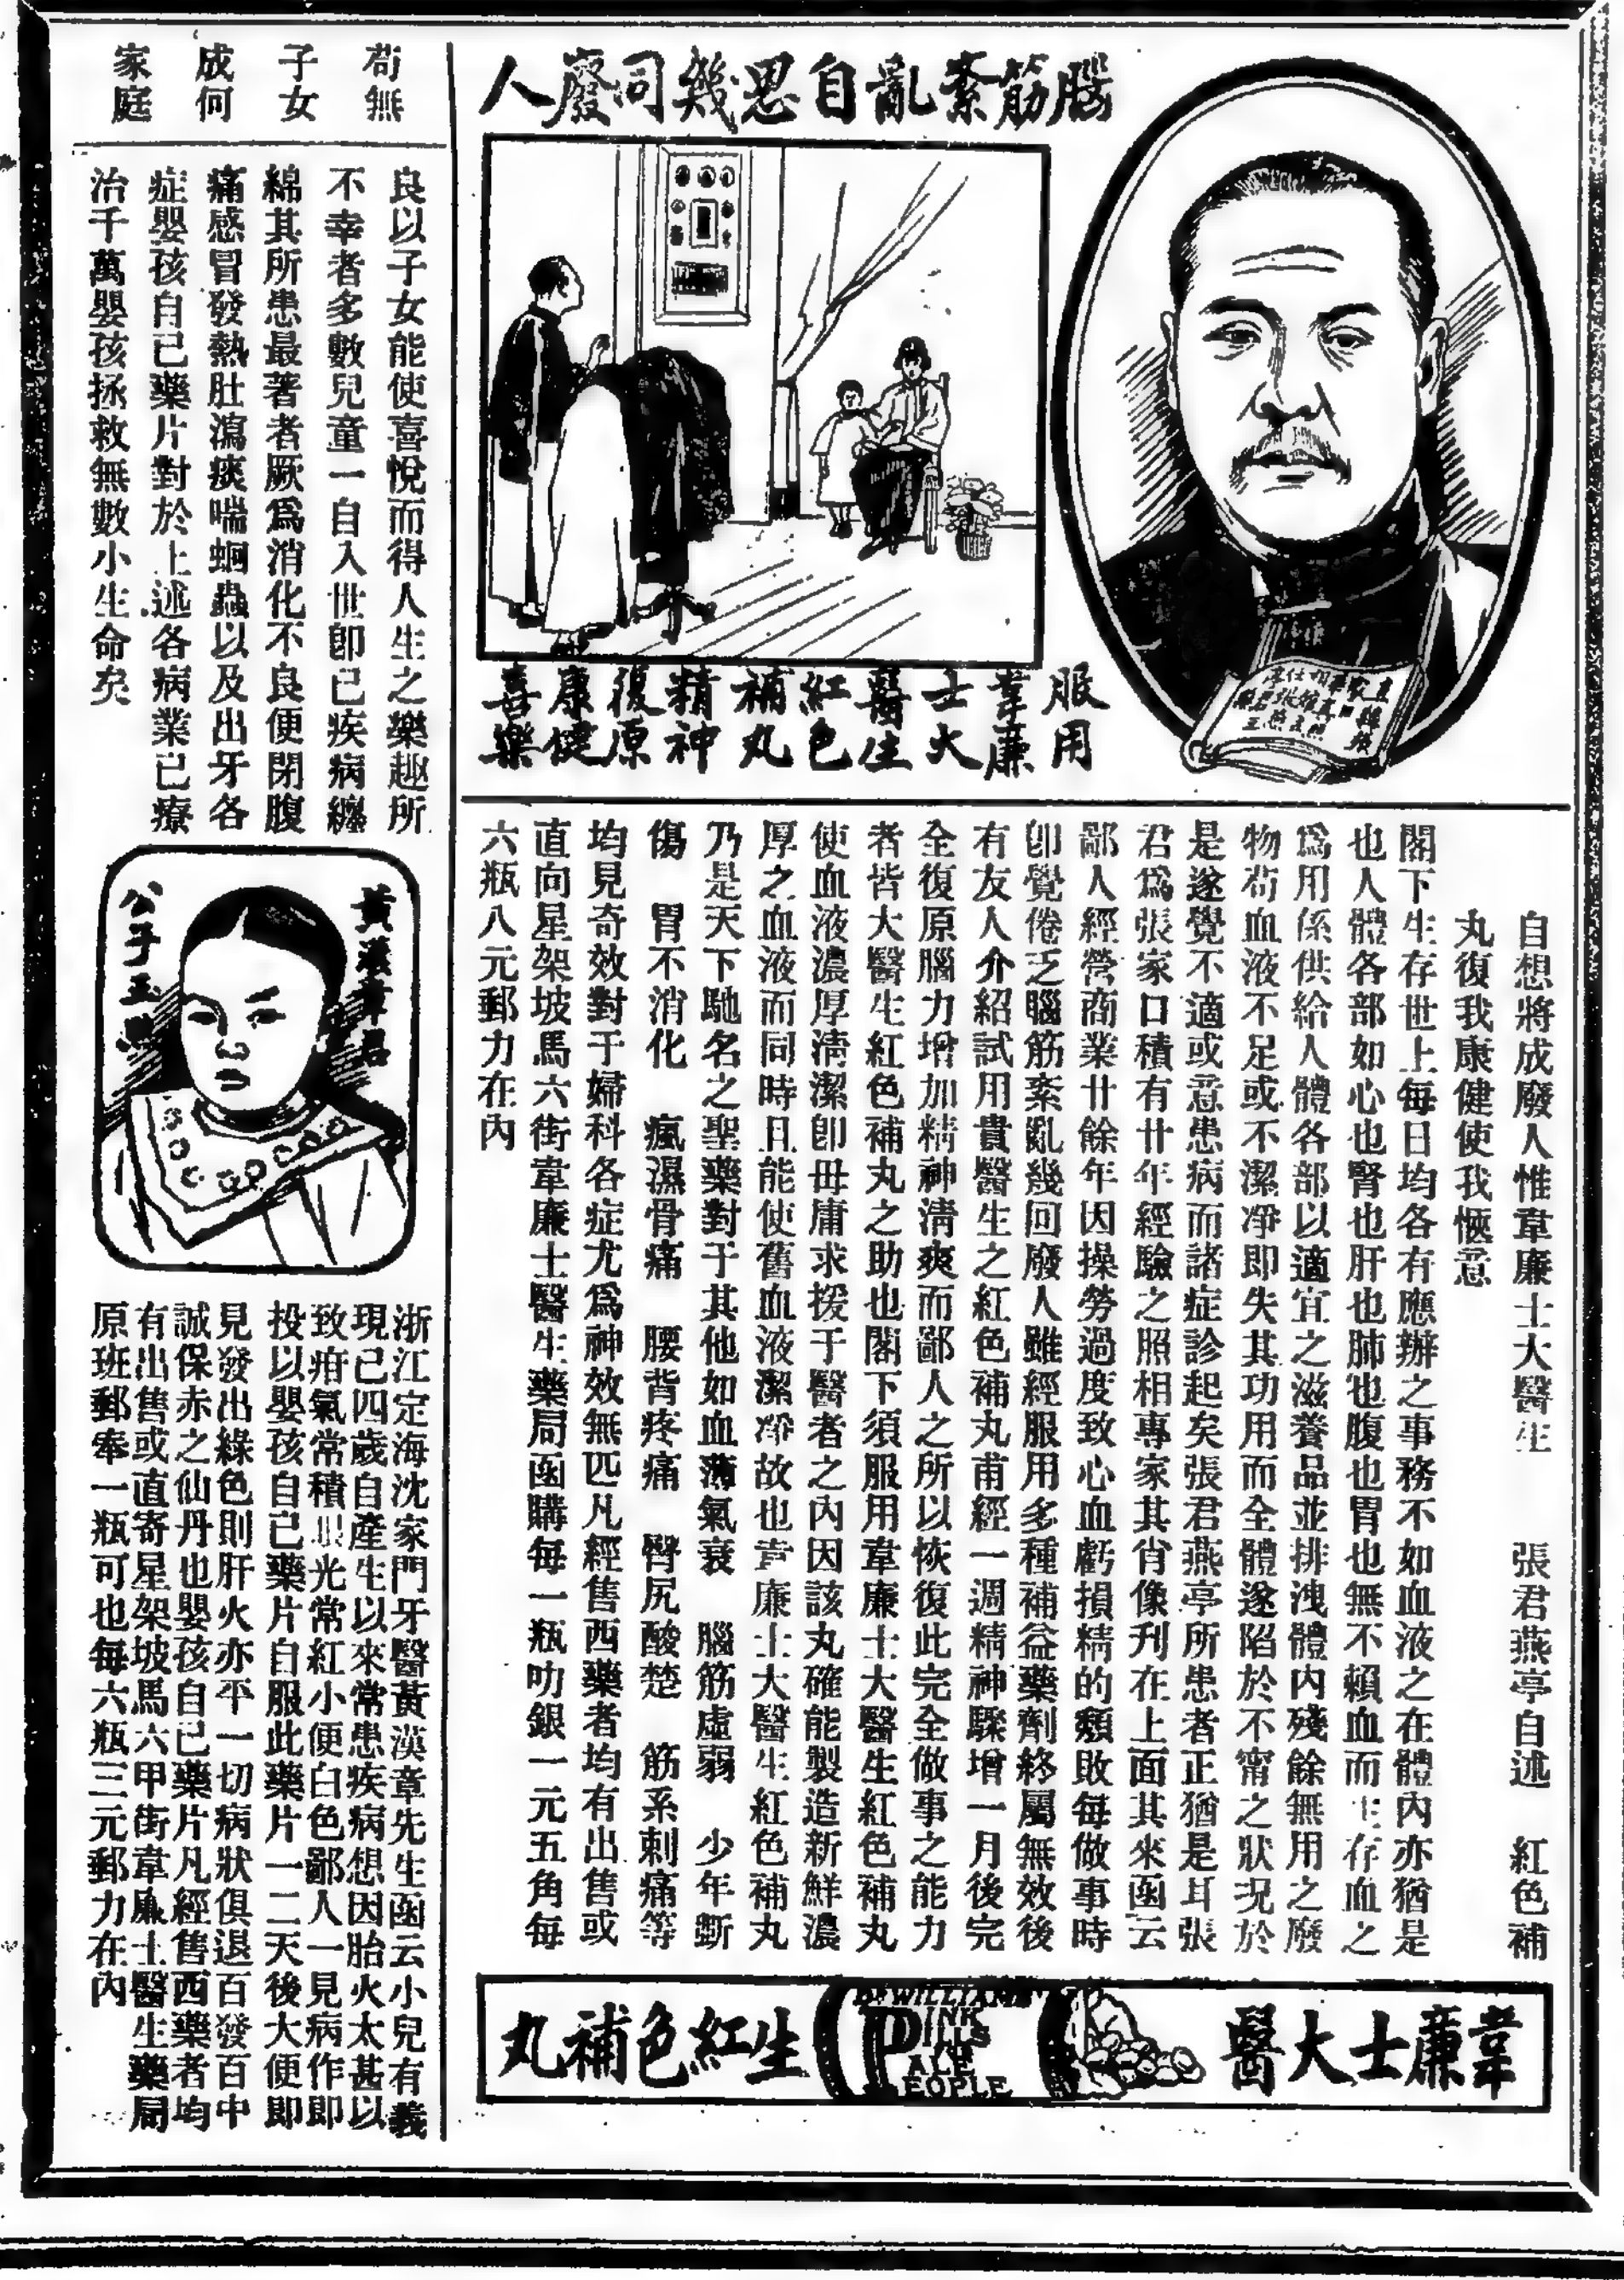 腦筋紊亂自思幾同廢人
服用
韋廉
士大
醫生
紅色
補丸
精神
復原
康健
喜樂
自想將成廢人惟韋廉士大醫生 張君燕亭自述 紅色補
丸復我康健使我愜意
閣下生存世上每日均各有應辦之事務不如血液之在體內亦猶是
也人體各部如心也腎也肝也肺也腹也胃也無不賴血而生存血之
爲用係供給人體各部以適宜之滋養品並排洩體內殘餘無用之廢
物苟血液不足或不潔凈即失其功用而全體遂陷於不甯之狀況於
是遂覺不適或意患病而諸症診起矣張君燕亭所患者正猶是耳張
君爲張家口積有廿年經驗之照相專家其肖像刋在上面其來函云
鄙人經營商業廿餘年因操勞過度致心血虧損精的頽敗每做事時
卽覺倦乏腦筋紊亂幾回廢人雖經服用多種補益藥劑終屬無效後
有友人介紹試用貴醫生之紅色補丸甫經一週精神驟增一月後完
全復原腦力增加精神淸爽而鄙人之所以恢復此完全做事之能力
者皆大醫生紅色補丸之助也閣下須服用韋廉士大醫生紅色補丸
使血液濃厚淸潔卽毋庸求援于醫者之內因該丸確能製造新鮮濃
厚之血液而同時且能使舊血液潔凈故也韋廉士大醫生紅色補丸
乃是天下馳名之聖藥對于其他如血薄氣衰 腦筋虛弱 少年斲
傷 胃不消化 瘋濕骨痛 腰背疼痛 臀尻酸楚 筋系刺痛等
均見奇效對于婦科各症尤爲神效無匹凡經售西藥者均有出售或
直向星架坡馬六街韋廉士醫生藥局函購每一瓶叻銀一元五角每
六瓶八元郵力在內
韋廉士大醫
DR WILLIAMS
PINK
PILLS
PALE
PEOPLE
生紅色補丸
苟無
子女
成何
家庭
良以子女能使喜悅而得人生之樂趣所
不幸者多數兒童一自入世卽已疾病纏
綿其所患最著者厥爲消化不良便閉腹
痛感冒發熱肚瀉痰喘蛔蟲以及出牙各
症嬰孩自已藥片對於上述各病業已療
治千萬嬰孩拯救無數小生命矣
黃漢章君
公子玉
浙江定海沈家門牙醫黃漢章先生函云小兒有義
現已四歲自產生以來常患疾病想因胎火太甚以
致疳氣常積眼光常紅小便白色鄙人一見病作即
投以嬰孩自已藥片自服此藥片一二天後大便即
見發出綠色則肝火亦平一切病狀俱退百發百中
誠保赤之仙丹也嬰孩自已藥片凡經售西藥者均
有出售或直寄星架坡馬六甲街韋廉士醫生藥局
原班郵奉一瓶可也每六瓶三元郵力在內